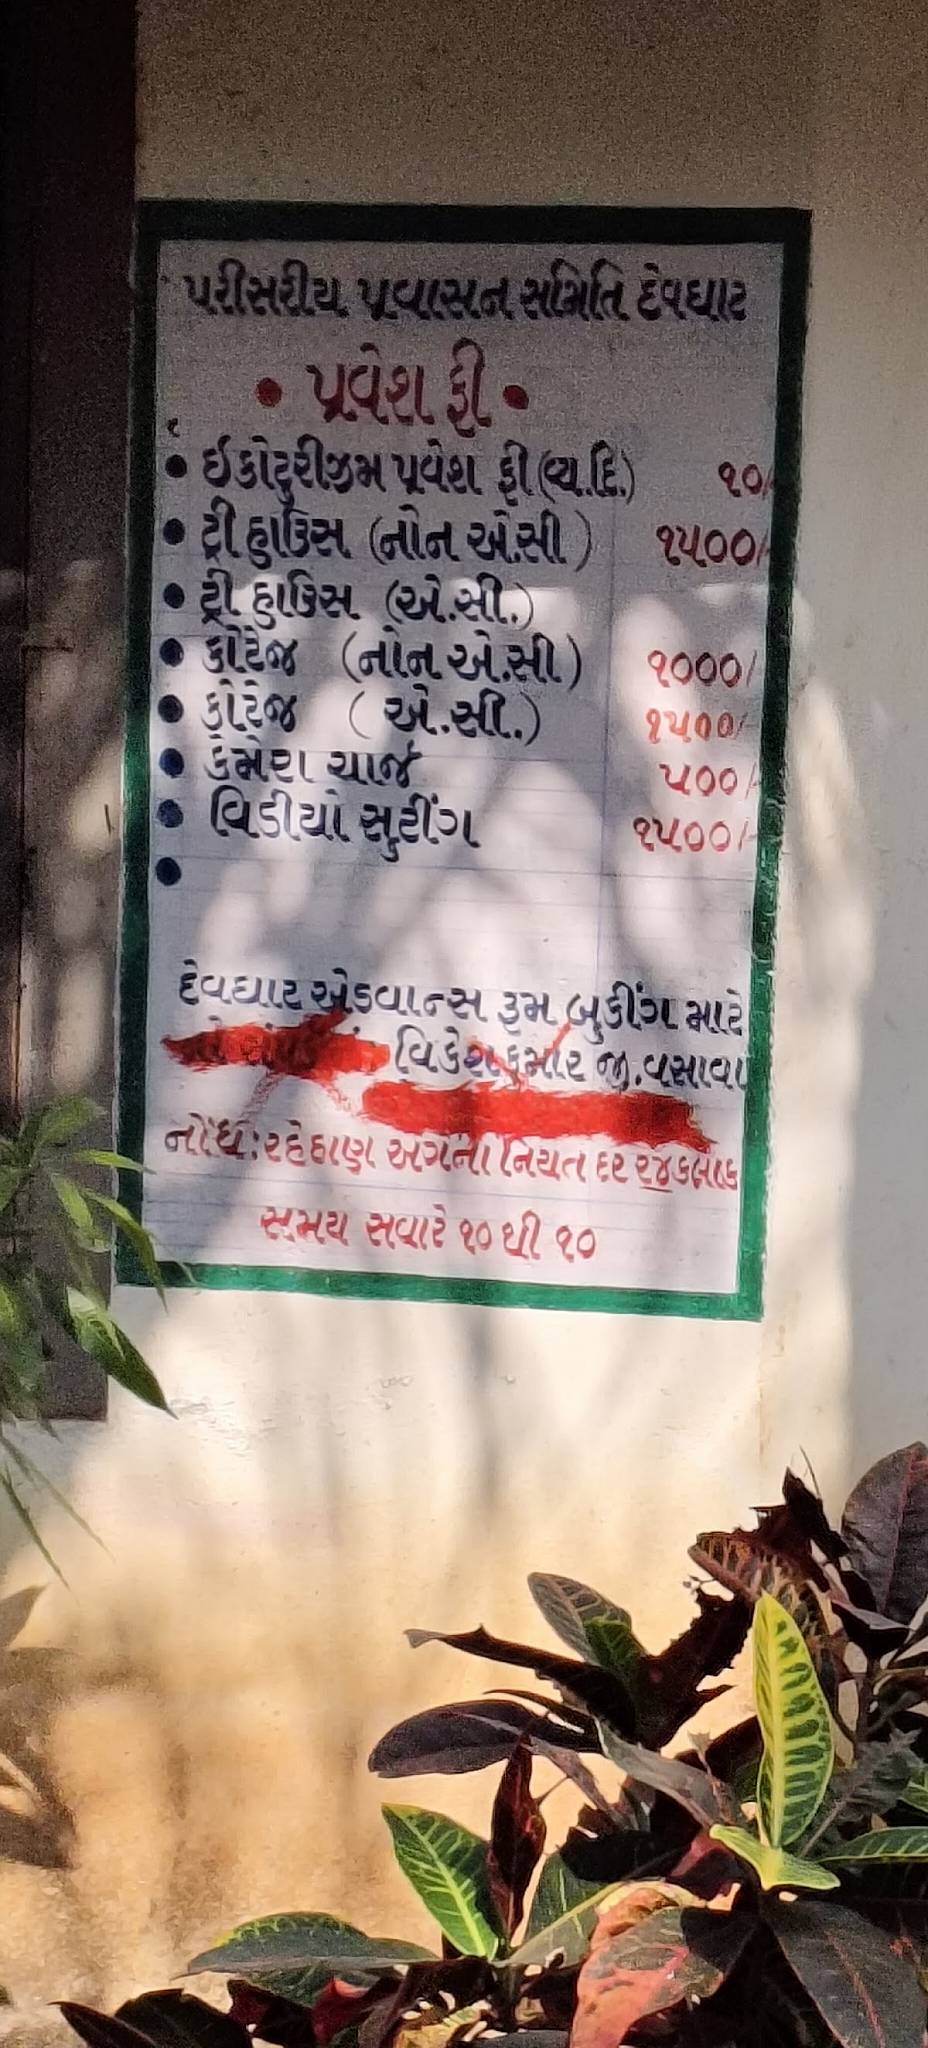 પરીસરીય પ્રવાસન સમિતિ દેવઘાટ
• પ્રવેશ ફી •
• ઈકોટુરીઝમ પ્રવેશ ફી (વ્ય.દિ.) ૧૦/-
• ટ્રી હાઉસ (નોન એ.સી) ૧૫૦૦/-
• ટ્રી હાઉસ (એ.સી.)
• કોટેજ (નોન એ.સી) ૧૦૦૦/-
• કોટેજ (એ.સી.) ૧૫૦૦/-
• કેમેરા ચાર્જ ૫૦૦/-
• વિડીયો સુટીંગ ૧૫૦૦/-
•
દેવઘાટ એડવાન્સ રૂમ બુકીંગ માટે
વિકેશકુમાર જી. વસાવા
નોંધ: રહેઠાણ અગેના નિયત દર ૨૪ કલાક
સમય સવારે ૧૦ થી ૧૦